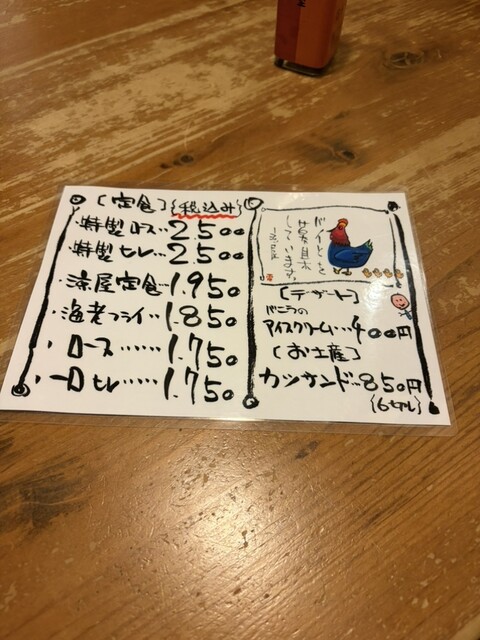 〔定食〕{税込み}
・特製ロース‥2.500
・特製ヒレ‥2.500
・涼屋定食‥1.950
・海老フライ‥1.850
・ロース‥‥‥1.750
・一口ヒレ‥‥1.750
バイトも
募集
しています。
〔デザート〕
バニラの
アイスクリーム‥400円
〔お土産〕
カツサンド‥850円
{6切れ}